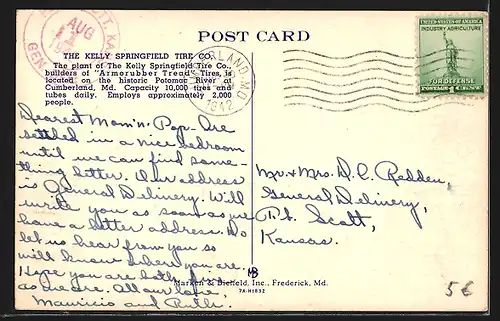 POST CARD
THE KELLY SPRINGFIELD TIRE CO.
The plant of The Kelly Springfield Tire Co.,
builders of "Armorubber Tread" Tires, is
located on the historic Potomac River at
Cumberland, Md. Capacity 10,000 tires and
tubes daily. Employs approximately 2,000
people.
AUG
GEN
1942
UNITED STATES OF AMERICA
INDUSTRY AGRICULTURE
FOR DEFENSE
POSTAGE 1 CENT
Dearest Mom'n-Pop-Are
settled in a nice bedroom
until we can find some-
thing better. Our address
is General Delivery. Will
write you as soon as we
have a better address. Do
let us hear from you so
will know where you are.
Hope you are both fine
as we are. All our love,
Mauricio and Ruth.
Mr + Mrs. D. C. Redden,
General Delivery,
Ft. Scott,
Kansas.
Marken & Bielfeld, Inc., Frederick, Md.
7A-H1832
5€